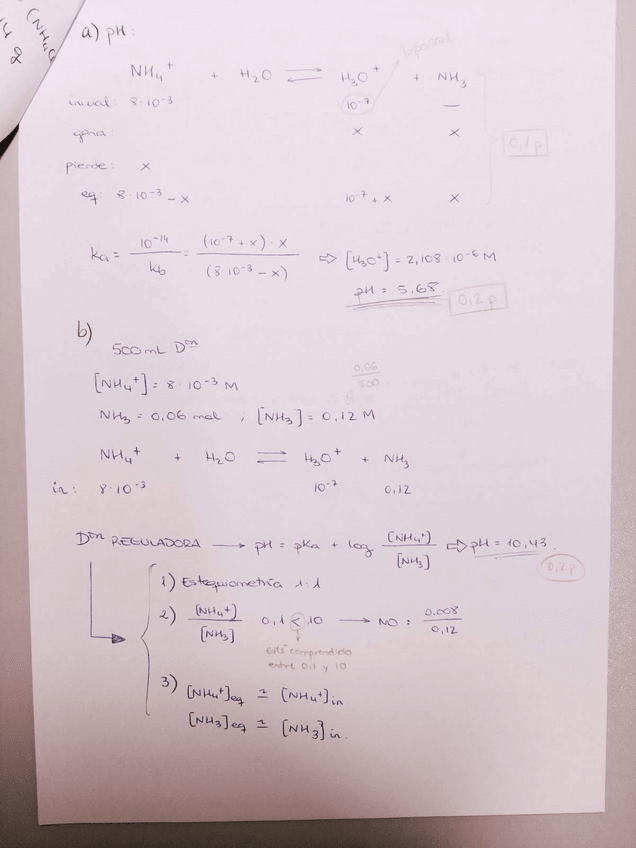 (NH4
2
a) pH:
NH4+ + H2O ⇌ H3O+ + NH3
inicial: 8·10-3 10-7 —
gana: x x
0,1 p
pierde: x
eq: 8·10-3 - x 10-7 + x x
ka = 10-14 / kb = (10-7 + x) · x / (8·10-3 - x) ⇨ [H3O+] = 2,108·10-6 M
pH = 5,68
0,2 p
b)
500 mL Don
0,06 / 500
[NH4+] = 8·10-3 M
NH3 = 0,06 mol ; [NH3] = 0,12 M
NH4+ + H2O ⇌ H3O+ + NH3
in: 8·10-3 10-7 0,12
Don REGULADORA → pH = pKa + log [NH4+] / [NH3] ⇨ pH = 10,43
0,2p
1) Estequiometría 1:1
2) [NH4+] / [NH3] 0,1 < 10 → NO : 0,008 / 0,12
está comprendido
entre 0,1 y 10
3) [NH4+]eq ≃ [NH4+]in
[NH3]eq ≃ [NH3]in.